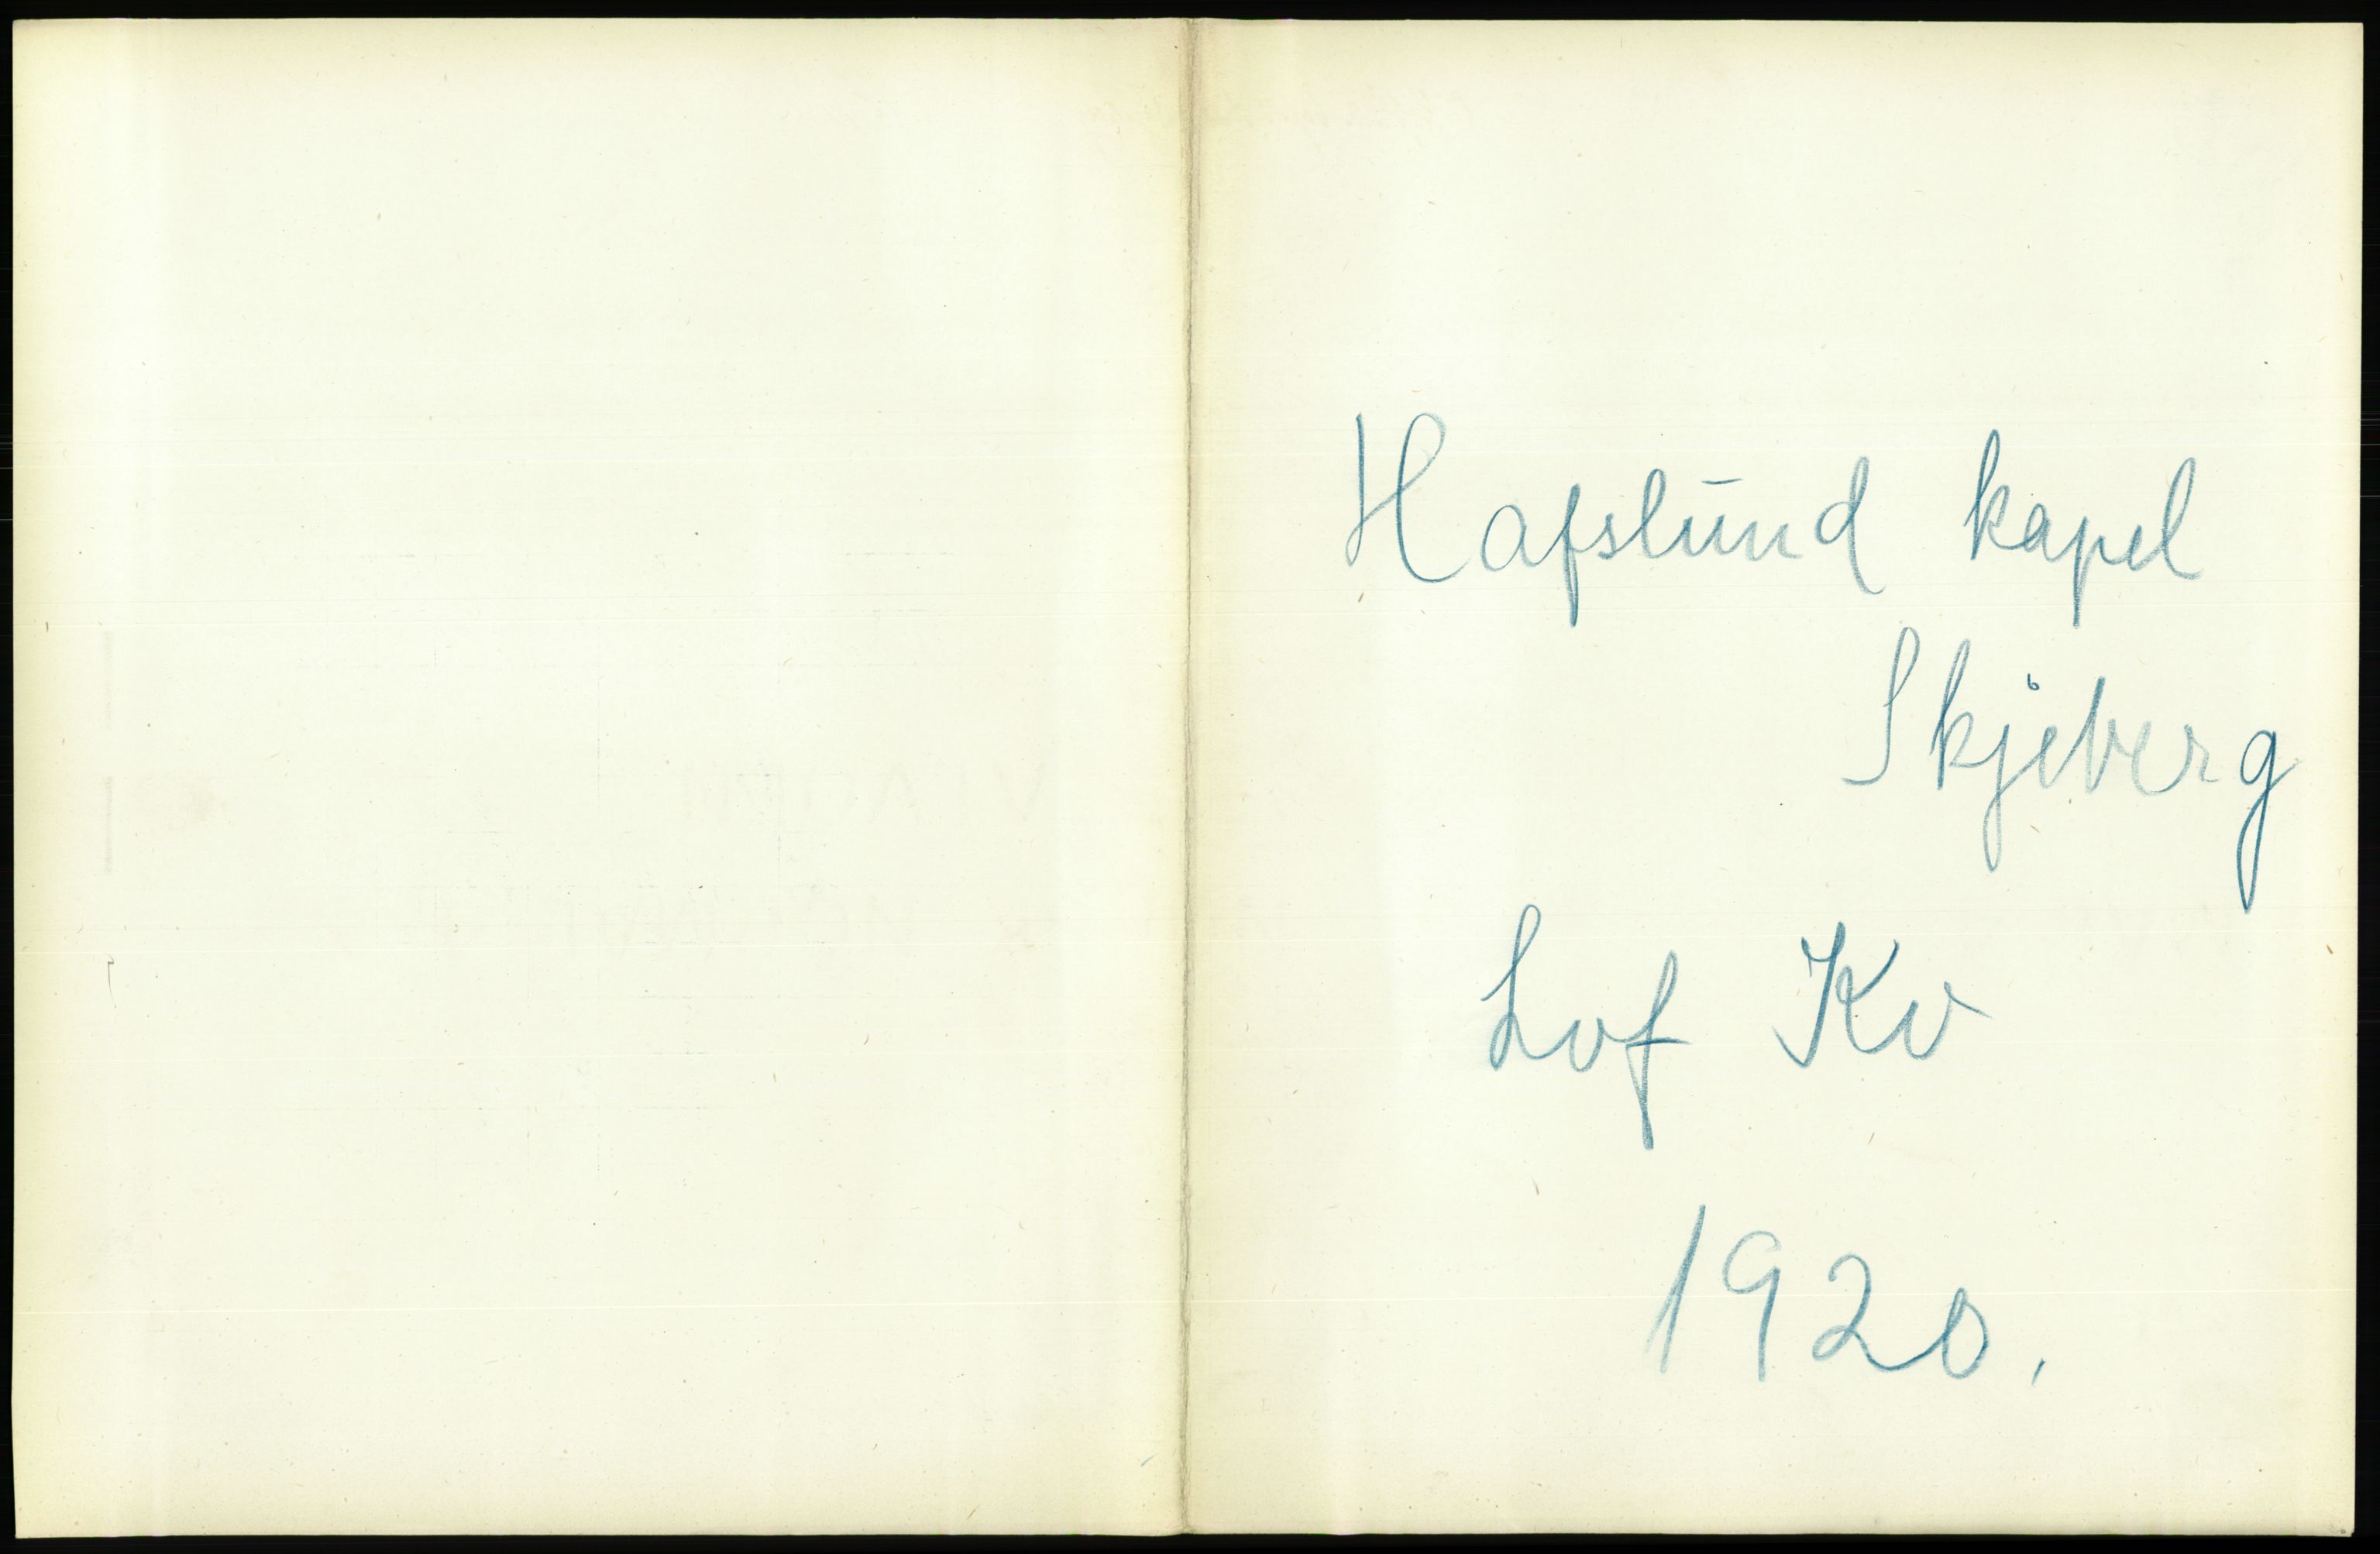 Hafslund kapel
Skjeberg
Lvf Kv
1920.